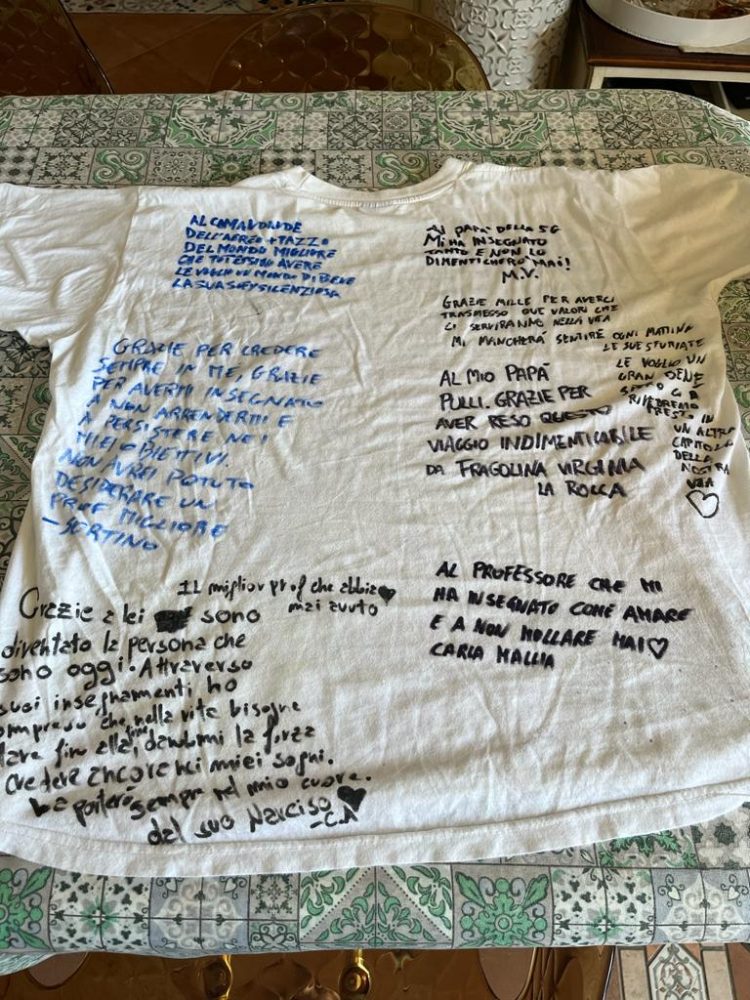 AL COMANDANTE
DELL'AEREO + PAZZO
DEL MONDO MIGLIORE
CHE POTESSIMO AVERE
LE VOGLIO UN MONDO DI BENE
LA SUA SILENZIOSA
GRAZIE PER CREDERE
SEMPRE IN ME, GRAZIE
PER AVERMI INSEGNATO
A NON ARRENDERMI E
A PERSISTERE NEI
MIEI OBIETTIVI.
NON AVREI POTUTO
DESIDERARE UN
PROF MIGLIORE
- SORTINO
IL miglior prof che abbia
mai avuto
Grazie a lei sono
diventato la persona che
sono oggi. Attraverso
suoi insegnamenti ho
compreso che nella vita bisogna
fin alla fine, dandomi la forza
credere ancora nei miei sogni.
La porterò sempre nel mio cuore.
dal suo Narciso
-C.A
PAPA' DELLA 5G
MI HA INSEGNATO
TANTO E NON LO
DIMENTICHERO' MAI!
M.V.
GRAZIE MILLE PER AVERCI
TRASMESSO QUEI VALORI CHE
CI SERVIRANNO NELLA VITA
MI MANCHERÀ SENTIRE OGNI MATTINA
LE SUE STURIATE
LE VOGLIO UN
GRAN BENE
RIVEDREMO
PRESTO IN
UN ALTRO
CAPITOLO
DELLA
NOSTRA
VITA
AL MIO PAPÀ
PULLI. GRAZIE PER
AVER RESO QUESTO
VIAGGIO INDIMENTICABILE
DA FRAGOLINA VIRGINIA
LA ROCCA
AL PROFESSORE CHE MI
HA INSEGNATO COME AMARE
E A NON MOLLARE MAI
CARLA MALLIA